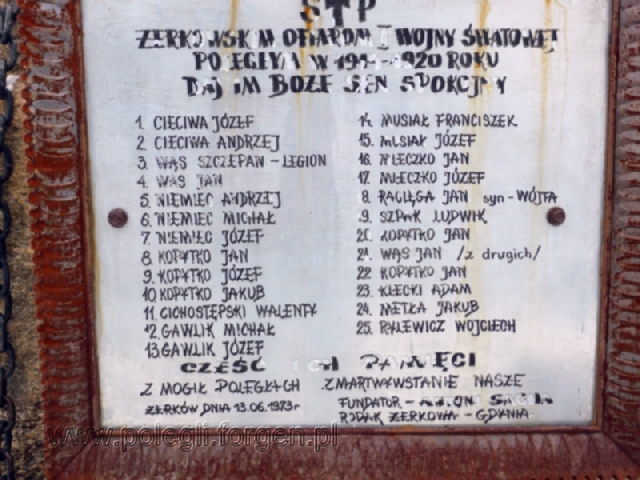 Ś † P
ŻERKOWSKIM OFIAROM I WOJNY ŚWIATOWEJ
POLEGŁYM W 1914-1920 ROKU
DAJ IM BOŻE SEN SPOKOJNY
1. CIECIWA JÓZEF
2. CIECIWA ANDRZEJ
3. WĄS SZCZEPAN - LEGION
4. WĄS JAN
5. NIEMIEC ANDRZEJ
6. NIEMIEC MICHAŁ
7. NIEMIEC JÓZEF
8. KOPYTKO JAN
9. KOPYTKO JÓZEF
10 KOPYTKO JAKUB
11. CICHOSTĘPSKI WALENTY
12. GAWLIK MICHAŁ
13. GAWLIK JÓZEF
14. MUSIAŁ FRANCISZEK
15. MUSIAŁ JÓZEF
16. MLECZKO JAN
17. MLECZKO JÓZEF
18. RACIĘGA JAN syn - WÓJTA
19. SZPAK LUDWIK
20. KOPYTKO JAN
21. WĄS JAN /z drugich/
22 KOPYTKO JAN
23. KŁECKI ADAM
24. METŁA JAKUB
25. RYLEWICZ WOJCIECH
CZEŚĆ ICH PAMIĘCI
Z MOGIŁ POLEGŁYCH ZMARTWYWSTANIE NASZE
ŻERKÓW, DNIA 13.06.1973r
FUNDATOR -
RODAK ŻERKOWA - GDYNIA
www.polegli.forgen.pl